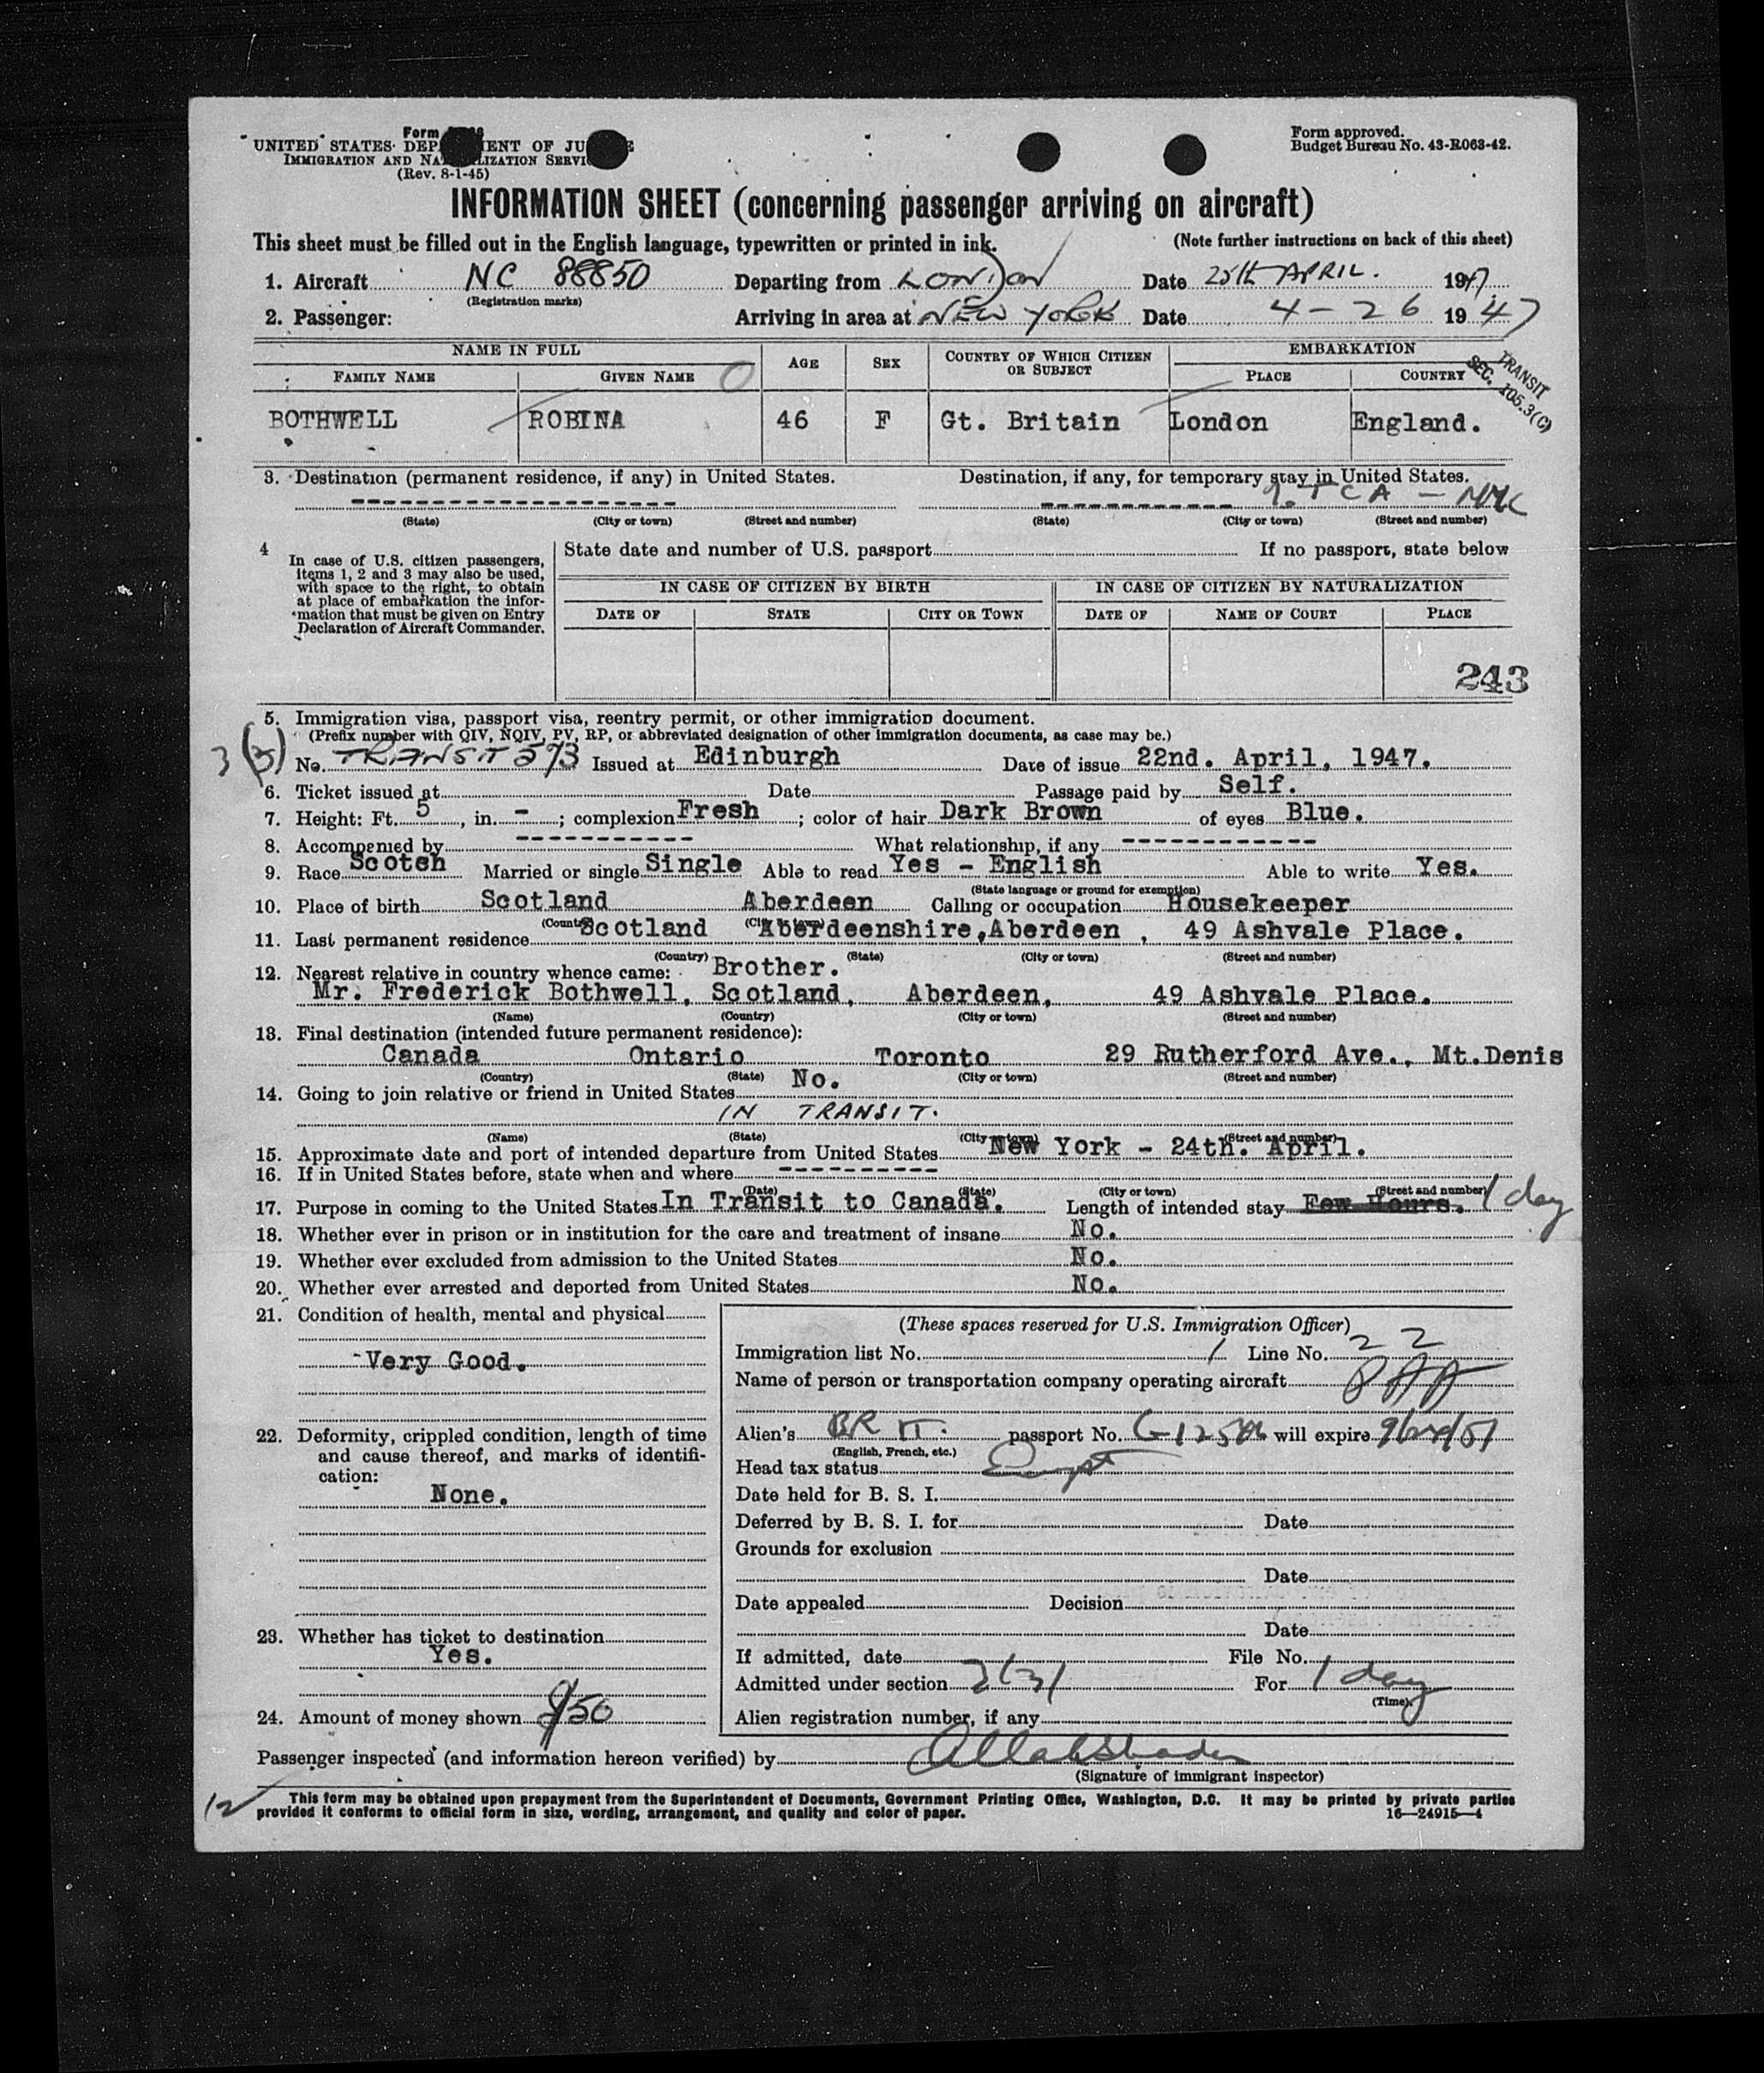 Form
UNITED STATES DEPARTMENT OF JUSTICE
IMMIGRATION AND NATURALIZATION SERVICE
(Rev. 8-1-45)
Form approved.
Budget Bureau No. 43-R063-42.
INFORMATION SHEET (concerning passenger arriving on aircraft)
This sheet must be filled out in the English language, typewritten or printed in ink. (Note further instructions on back of this sheet)
1. Aircraft NC 88850 Departing from LONDON Date 25th APRIL. 1947
(Registration marks)
2. Passenger: Arriving in area at NEW YORK Date 4-26 1947
NAME IN FULL AGE SEX COUNTRY OF WHICH CITIZEN OR SUBJECT EMBARKATION
FAMILY NAME GIVEN NAME PLACE COUNTRY
TRANSIT
SEC. 105.3(C)
BOTHWELL ROBINA 46 F Gt. Britain London England.
3. Destination (permanent residence, if any) in United States. Destination, if any, for temporary stay in United States.
------------------- ------------ TCA - NYC
(State) (City or town) (Street and number) (State) (City or town) (Street and number)
4 In case of U.S. citizen passengers, items 1, 2 and 3 may also be used, with space to the right, to obtain at place of embarkation the information that must be given on Entry Declaration of Aircraft Commander.
State date and number of U.S. passport If no passport, state below
IN CASE OF CITIZEN BY BIRTH IN CASE OF CITIZEN BY NATURALIZATION
DATE OF STATE CITY OR TOWN DATE OF NAME OF COURT PLACE
243
5. Immigration visa, passport visa, reentry permit, or other immigration document.
(Prefix number with QIV, NQIV, PV, RP, or abbreviated designation of other immigration documents, as case may be.)
3(3) No. TRANSIT 573 Issued at Edinburgh Date of issue 22nd. April, 1947.
6. Ticket issued at Date Passage paid by Self.
7. Height: Ft. 5, in. -; complexion Fresh; color of hair Dark Brown of eyes Blue.
8. Accompanied by ------------ What relationship, if any -------------
9. Race Scotch Married or single Single Able to read Yes - English Able to write Yes.
(State language or ground for exemption)
10. Place of birth Scotland Aberdeen Calling or occupation Housekeeper
(Country) (City or town)
11. Last permanent residence Scotland Aberdeenshire, Aberdeen, 49 Ashvale Place.
(Country) (State) (City or town) (Street and number)
12. Nearest relative in country whence came: Brother.
Mr. Frederick Bothwell, Scotland, Aberdeen, 49 Ashvale Place.
(Name) (Country) (City or town) (Street and number)
13. Final destination (intended future permanent residence):
Canada Ontario Toronto 29 Rutherford Ave., Mt.Denis
(Country) (State) (City or town) (Street and number)
14. Going to join relative or friend in United States No.
IN TRANSIT.
(Name) (State) (City or town) (Street and number)
15. Approximate date and port of intended departure from United States New York - 24th. April.
16. If in United States before, state when and where ----------
(Date) (State) (City or town) (Street and number)
17. Purpose in coming to the United States In Transit to Canada. Length of intended stay Few Hours. 1 day
18. Whether ever in prison or in institution for the care and treatment of insane No.
19. Whether ever excluded from admission to the United States No.
20. Whether ever arrested and deported from United States No.
21. Condition of health, mental and physical
Very Good.
22. Deformity, crippled condition, length of time and cause thereof, and marks of identification:
None.
23. Whether has ticket to destination
Yes.
24. Amount of money shown $50
(These spaces reserved for U.S. Immigration Officer)
Immigration list No. 1 Line No. 22
Name of person or transportation company operating aircraft PAA
Alien's BRIT. passport No. will expire
(English, French, etc.)
Head tax status Exempt
Date held for B. S. I.
Deferred by B. S. I. for Date
Grounds for exclusion
Date
Date appealed Decision
Date
If admitted, date File No.
Admitted under section 3(3) For 1 day
(Time)
Alien registration number, if any
Passenger inspected (and information hereon verified) by
(Signature of immigrant inspector)
12
This form may be obtained upon prepayment from the Superintendent of Documents, Government Printing Office, Washington, D.C. It may be printed by private parties
provided it conforms to official form in size, wording, arrangement, and quality and color of paper. 16—24915-4